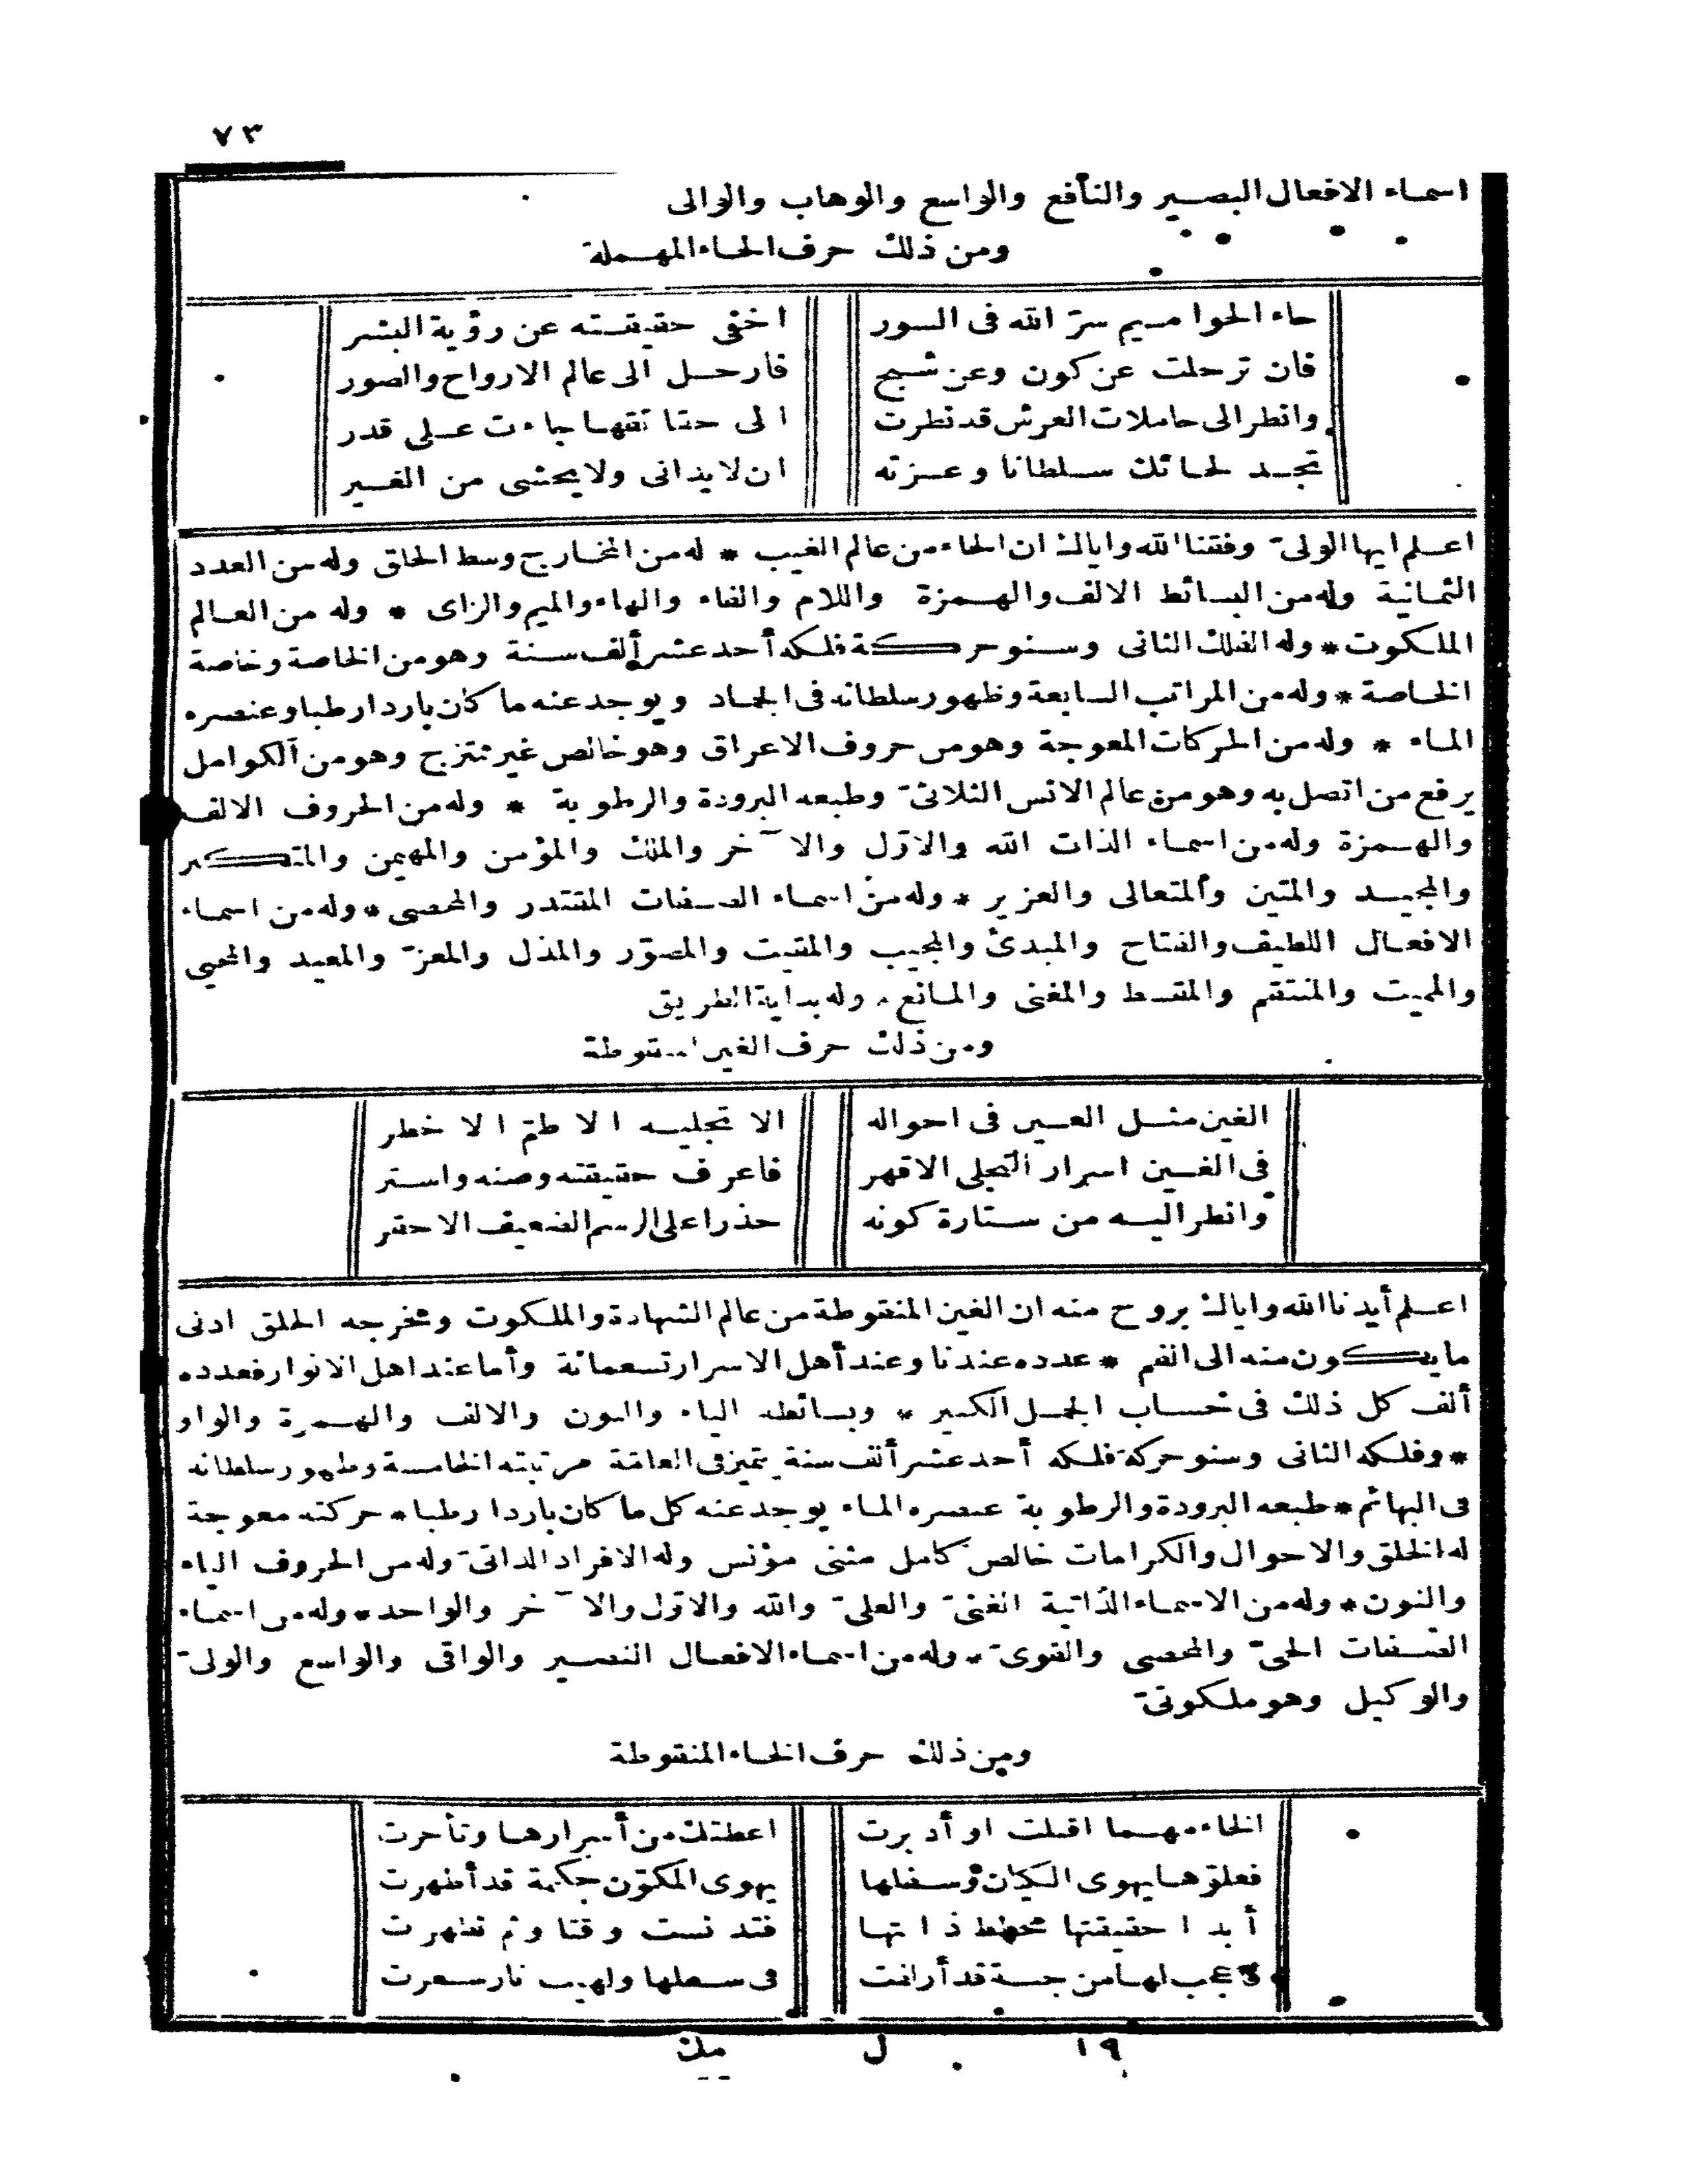 ٧٣
اسماء الافعال البصير والنافع والواسع والوهاب والوالى
ومن ذلك حرف الحاء المهملة
حاء الحواميم سرّ الله فى السور اخفى حقيقته عن رؤية البشر
فان ترحلت عن كون وعن شبح فارحل الى عالم الارواح والصور
وانظر الى حاملات العرش قد نظرت الى حقائقها جاءت على قدر
تجد لحائك سلطانا وعزته ان لا يدانى ولا يخشى من الغير
اعلم ايها الولىّ وفقنا الله واياك ان الحاء من عالم الغيب * له من المخارج وسط الحلق وله من العدد
الثمانية وله من البسائط الالف والهمزة واللام والفاء والهاء والميم والزاى * وله من العالم
الملكوت * وله الفلك الثانى وسنو حركة فلكه أحد عشر ألف سنة وهو من الخاصة وخاصة
الخاصة * وله من المراتب السابعة وظهور سلطانه فى الجماد ويوجد عنه ما كان باردا رطبا وعنصره
الماء * وله من الحركات المعوجة وهو من حروف الاعراق وهو خالص غير ممتزج وهو من الكوامل
يرفع من اتصل به وهو من عالم الانس الثلاثىّ وطبعه البرودة والرطوبة * وله من الحروف الالف
والهمزة وله من اسماء الذات الله والاوّل والآخر والملك والمؤمن والمهيمن والمتكبر
والمجيد والمتين والمتعالى والعزيز * وله من اسماء الصفات المقتدر والمحصى * وله من اسماء
الافعال اللطيف والفتاح والمبدئ والمجيب والمقيت والمصوّر والمذل والمعزّ والمعيد والمحيى
والمميت والمنتقم والمقسط والمغنى والمانع * وله بداية الطريق
ومن ذلك حرف الغين المنقوطة
الغين مثل العين فى احواله الا تجليه الاطمّ الاخطر
فى الغين اسرار التجلى الاقهر فاعرف حقيقته وصنه واستر
وانظر اليه من ستارة كونه حذرا على الرسم الضعيف الاحقر
اعلم أيدنا الله واياك بروح منه ان الغين المنقوطة من عالم الشهادة والملكوت ومخرجه الحلق ادنى
ما يكون منه الى الفم * عدده عندنا وعند أهل الاسرار تسعمائة وأما عند اهل الانوار فعدده
ألف كل ذلك فى حساب الجمل الكبير * وبسائطه الياء والنون والالف والهمزة والواو
* وفلكه الثانى وسنو حركة فلكه أحد عشر ألف سنة يتميز فى العامّة مرتبته الخامسة وظهور سلطانه
فى البهائم * طبعه البرودة والرطوبة عنصره الماء يوجد عنه كل ما كان باردا رطبا * حركته معوجة
له الخلق والاحوال والكرامات خالص كامل مثنى مؤنس وله الافراد الذاتىّ وله من الحروف الياء
والنون * وله من الاسماء الذاتية الغنىّ والعلىّ والله والاوّل والآخر والواحد * وله من اسماء
الصفات الحىّ والمحصى والقوىّ * وله من اسماء الافعال النصير والواقى والواسع والولىّ
والوكيل وهو ملكوتىّ
ومن ذلك حرف الخاء المنقوطة
الخاء مهما اقبلت او أدبرت اعطتك من أسرارها وتأخرت
فعلوّها يهوى الكيان وسفلها يهوى المكوّن حكمة قد أظهرت
أبدا حقيقتها مخطط ذاتها فتدنست وقتا وثم تطهرت
فاعجب لها من جنة قد أزلفت فى سفلها ولهيب نار سعرت
١٩ ل مك